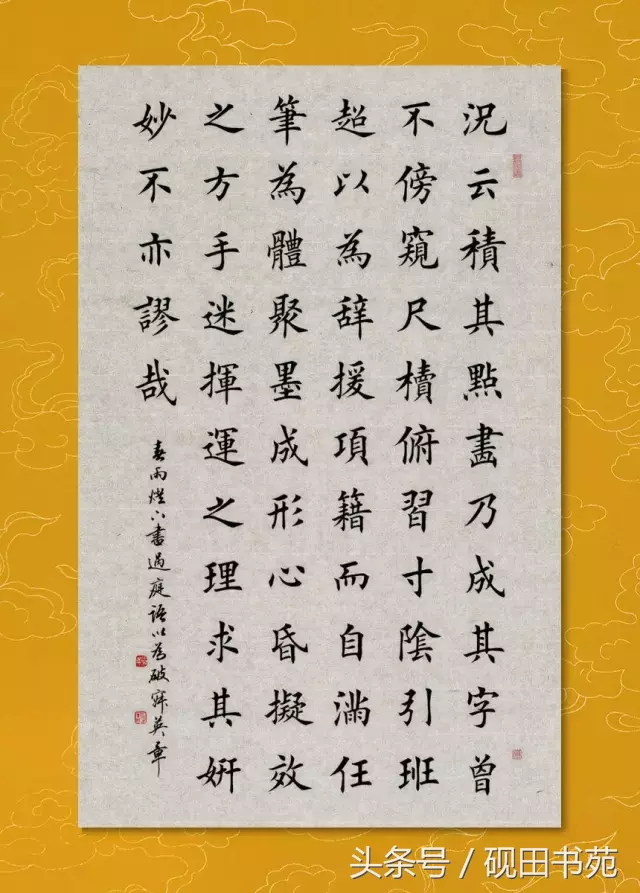 況云積其點畫乃成其字曾
不傍窺尺櫝俯習寸陰引班
超以為辞援項籍而自滿任
筆為體聚墨成形心昏擬效
之方手迷揮運之理求其妍
妙不亦謬哉
春雨燈下書過庭語以為破寂英章
头条号 / 砚田书苑